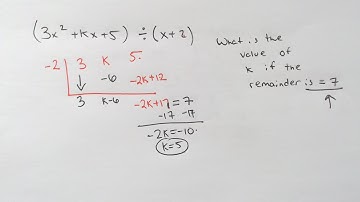 (3x² + kx + 5) ÷ (x + 2)
What is the
value of
k if the
remainder is = 7
-2 3 k 5
↓ -6 -2k+12
3 k-6 -2k+17 = 7
-17 -17
-2k = -10
k = 5